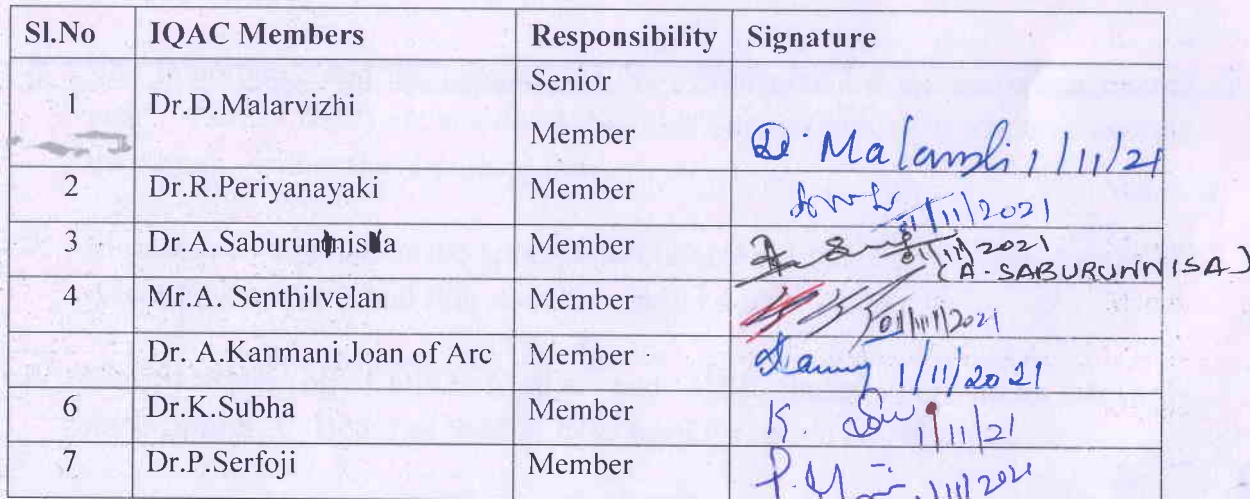 Sl.No IQAC Members Responsibility Signature
1 Dr.D.Malarvizhi Senior Member 1/11/21
2 Dr.R.Periyanayaki Member 01/11/2021
3 Dr.A.Saburunnisa Member 01/11/2021
(A. SABURUNNISA)
4 Mr.A. Senthilvelan Member 01/11/2021
Dr. A.Kanmani Joan of Arc Member 1/11/2021
6 Dr.K.Subha Member K. 1/11/21
7 Dr.P.Serfoji Member P. 1/11/2021